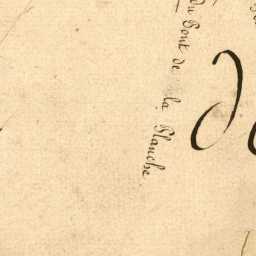 du Pont de la Planche